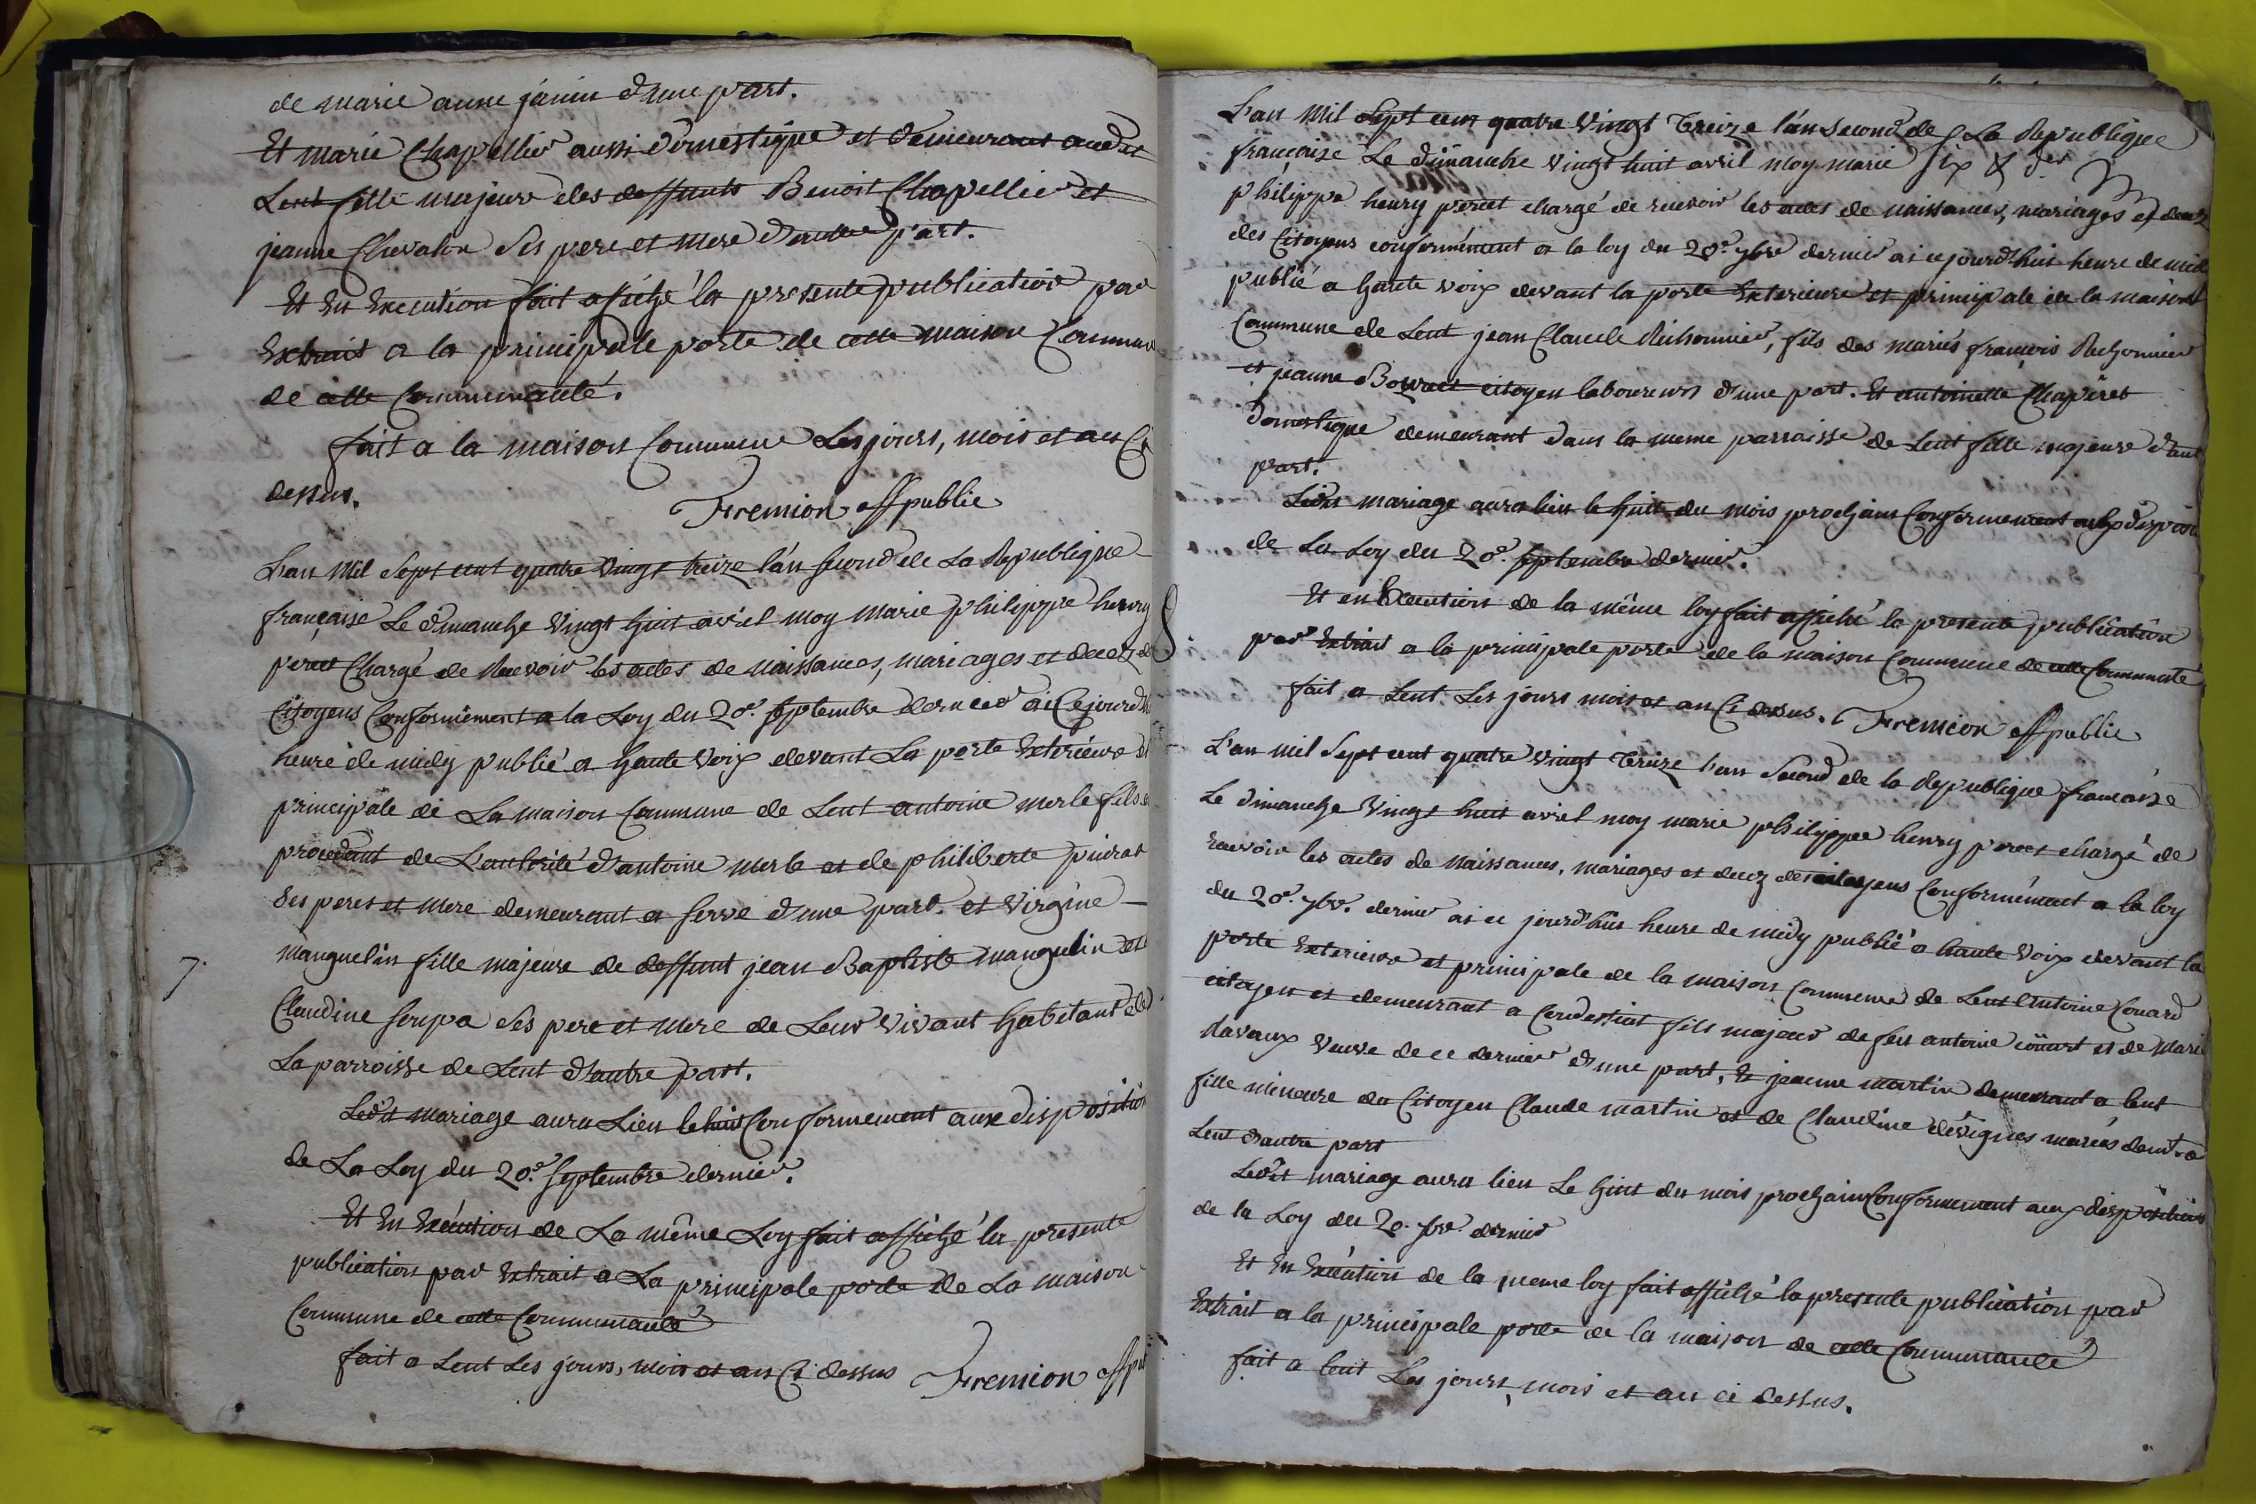 de marie anne janin d'une part.
Et marie Chapellier aussi domestique et demeurant audit
Lent fille majeure des deffunts Benoit Chapellier et
jeanne Chevalon ses pere et mere d'autre part.
Et En Execution fait affiché la presente publication par
Extrait a la principale porte de cette maison Commune
de cette Communauté.
fait a la maison Commune Les jours, mois et an Ci
dessus.
Fremion off public
L'an Mil Sept cent quatre Vingt treize l'an second de La Republique
française Le dimanche Vingt huit avril moy Marie philippe henry
perret Chargé de Recevoir les actes de Naissances, mariages et decez des
Citoyens Conformement a la Loy du 20e. septembre dernier ai Cejourd'h
heure de midy publié a haute Voix devant La porte Exterieure et
principale de La maison Commune de Lent antoine merle fils et
procedant de L'autorité d'antoine merle et de philiberte
ses peres et mere demeurant a Servé d'une part. et Virgine
7. manguelin fille majeure de deffunt jean Baptiste manguelin et de
Claudine soupa ses pere et mere de Leur Vivant habitant de
La parroisse de Lent d'autre part.
Ledit mariage aura Lieu le huit Conformement aux disposition
de La Loy du 20e. Septembre dernier.
Et En Execution de La même Loy fait affiché la presente
publication par Extrait a La principale porte de La maison
Commune de cette Communauté
fait a Lent Les jours, mois et an Ci dessus Fremion off pub
L'an Mil Sept cent quatre Vingt Treize l'an Second de La Republique
française Le dimanche Vingt huit avril moy marie
philippe henry perret chargé de recevoir les actes de naissances, mariages et decez
des Citoyens conformément a la loy du 20e. 7bre dernier ai cejourd'hui heure de midi
publié a haute voix devant la porte Exterieure et principale de la maison
Commune de Lent jean Claude Richonnier, fils des mariés françois Richonnier
et jeanne citoyen laboureurs d'une part. Et antoinette
domestique demeurant dans la meme parroisse de Lent fille majeure d'aut
part.
Ledit mariage aura lieu le huit du mois prochain Conformement
de La Loy du 20e. septembre dernier.
8. Et en Execution de la même loy fait affiché la presente publication
par Extrait a la principale porte de la maison Commune de cette Communauté
fait a Lent Les jours mois et an Ci dessus. Fremion off public
L'an mil Sept cent quatre Vingt Treize l'an Second de la Republique française
Le dimanche Vingt huit avril moy marie philippe henry perret chargé de
recevoir les actes de Naissances, mariages et decez des citoyens Conformément a la loy
du 20e. 7bre. dernier ai ce jourd'hui heure de midy publié a haute Voix devant la
porte Exterieure et principale de la maison Commune de Lent Antoine Couard
citoyen et demeurant a fils majeur de feu antoine et de Marie
Ravaux veuve de ce dernier d'une part, Et jeanne martin demeurant a lent
fille mineure du Citoyen Claude martin et de Claudine dévignes mariés demt. a
Lent d'autre part
Ledit mariage aura lieu Le huit du mois prochain Conformement aux dispositions
de la Loy du 20. 7bre dernier
Et En Execution de la meme loy fait affiché la presente publication par
Extrait a la principale porte de la maison de cette Communauté
fait a lent Les jours, mois et an ci dessus.